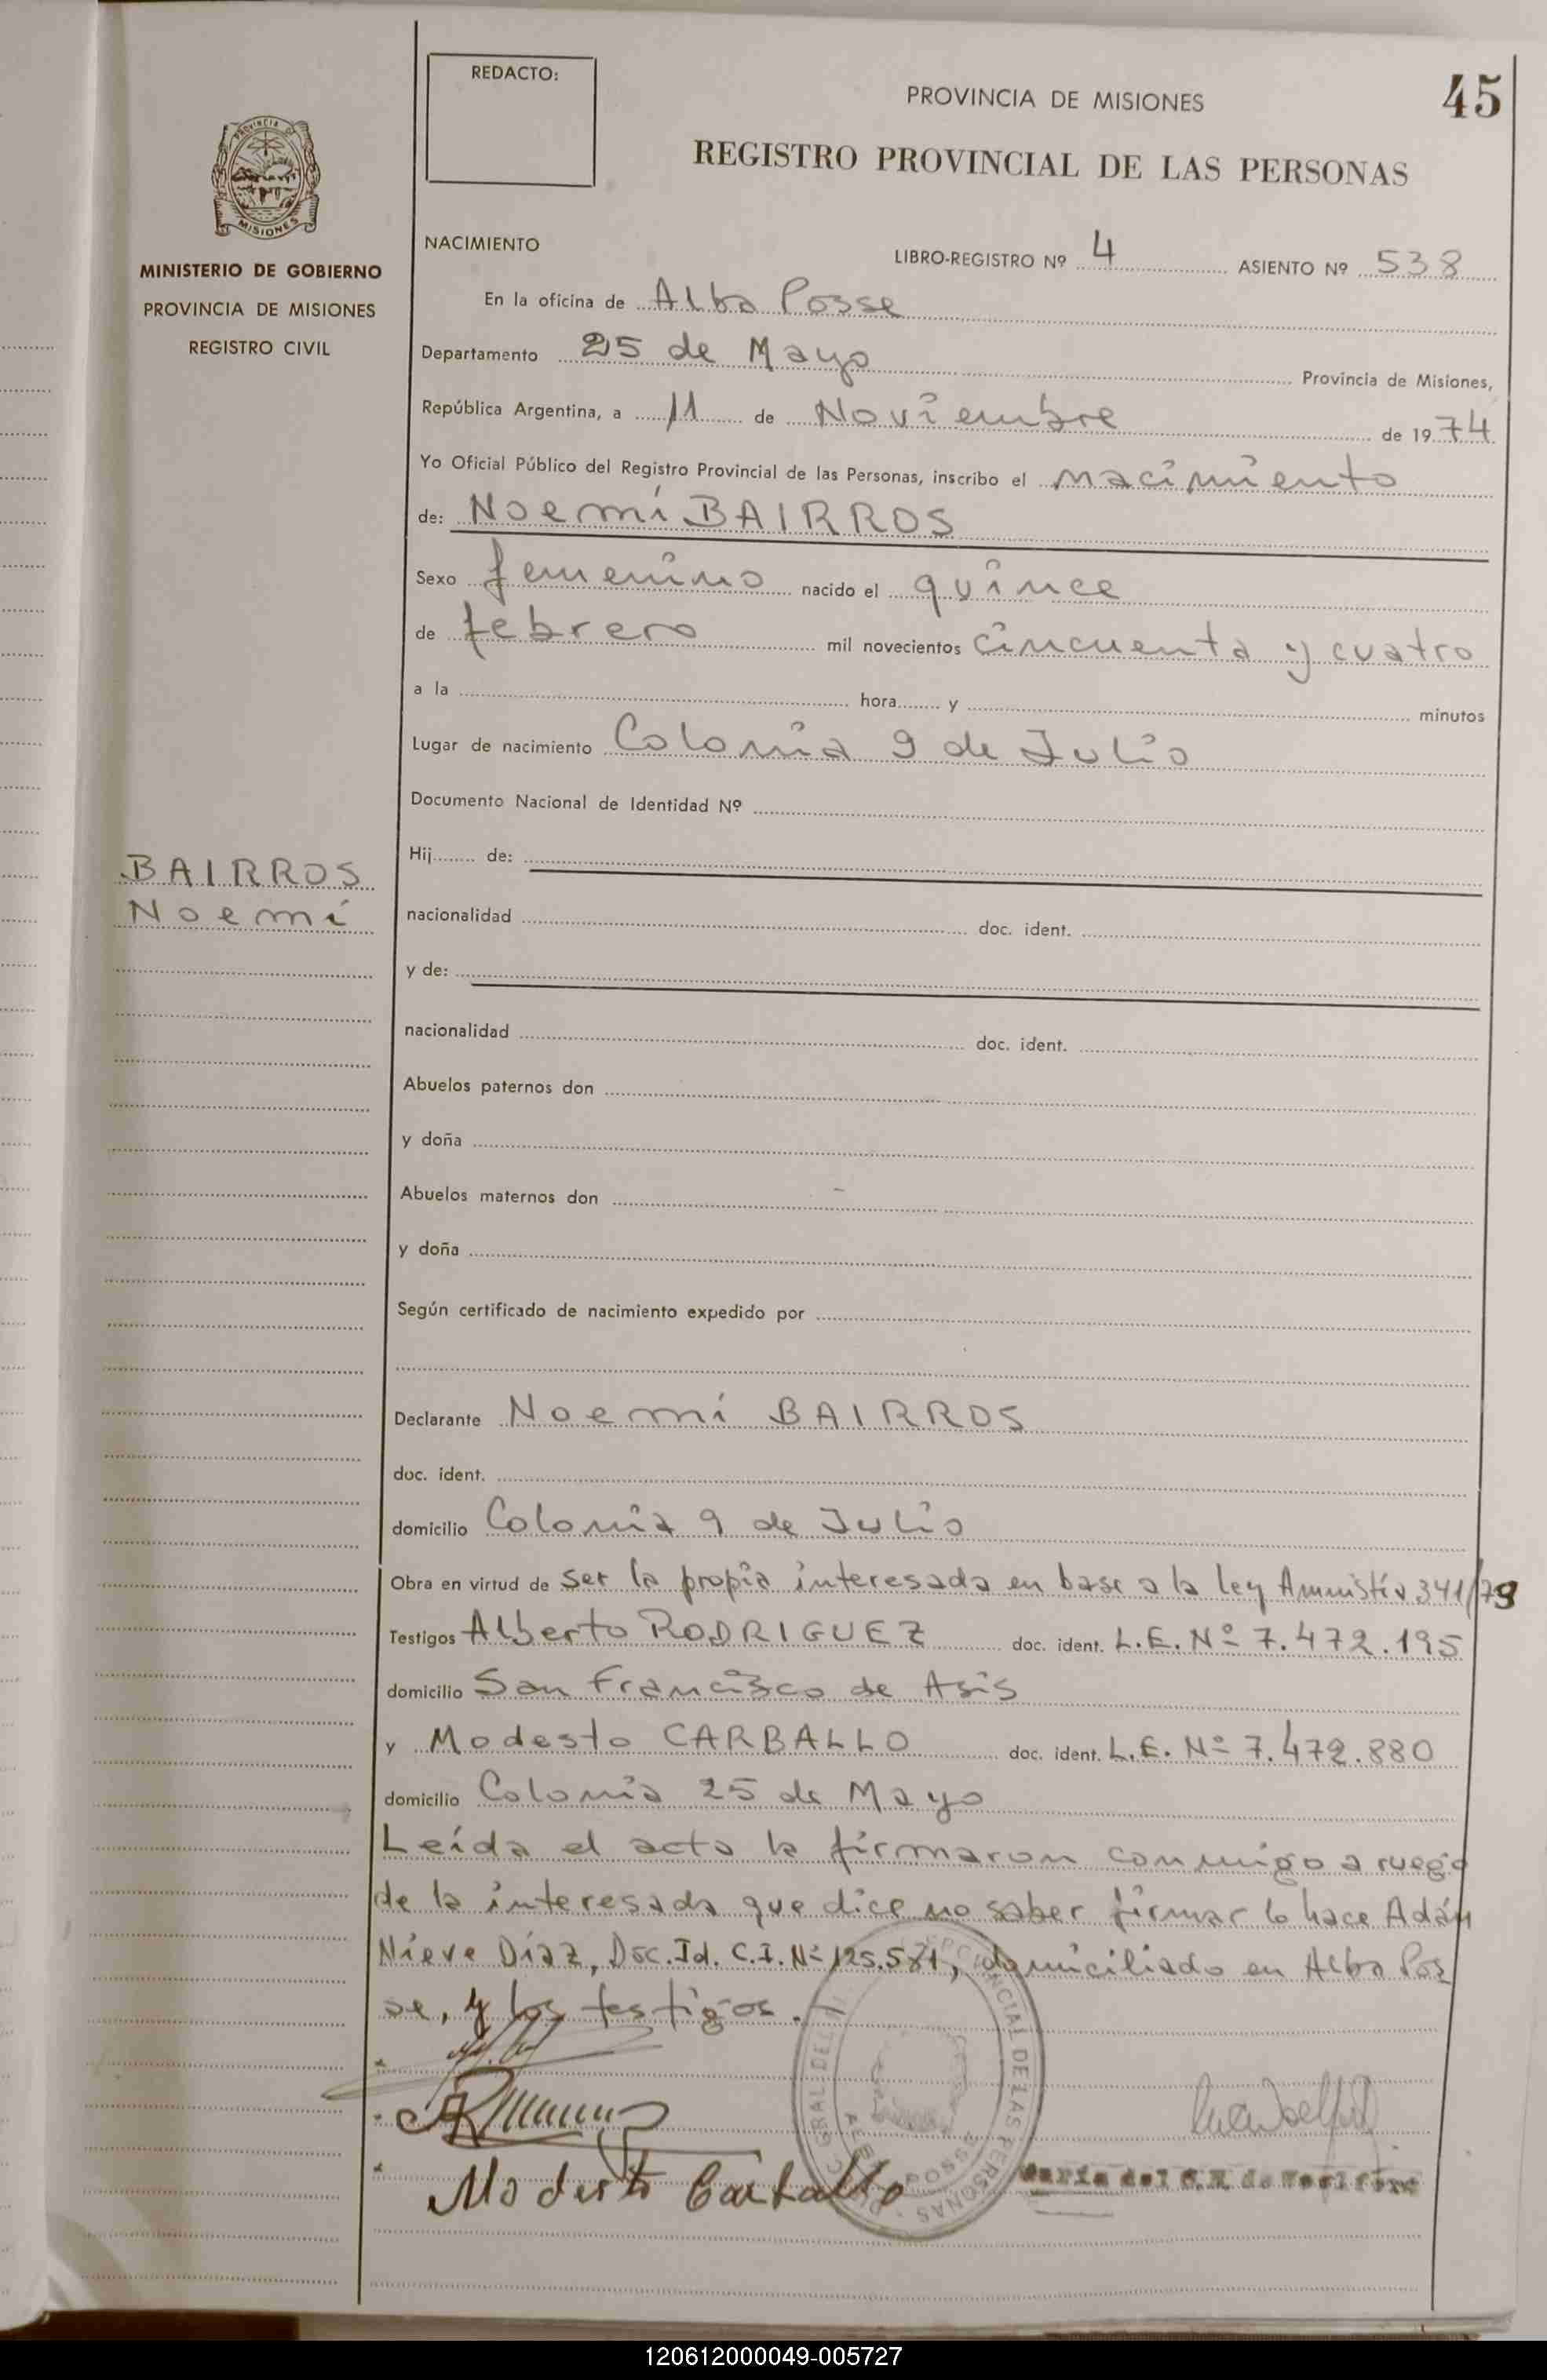 REDACTO:
PROVINCIA DE MISIONES
45
REGISTRO PROVINCIAL DE LAS PERSONAS
PROVINCIA DE
MISIONES
MINISTERIO DE GOBIERNO
PROVINCIA DE MISIONES
REGISTRO CIVIL
NACIMIENTO
LIBRO-REGISTRO Nº 4 ASIENTO Nº 538
En la oficina de Alba Posse
Departamento 25 de Mayo Provincia de Misiones,
República Argentina, a 11 de Noviembre de 1974
Yo Oficial Público del Registro Provincial de las Personas, inscribo el nacimiento
de: Noemí BAIRROS
Sexo femenino nacido el quince
de febrero mil novecientos cincuenta y cuatro
a la hora y minutos
Lugar de nacimiento Colonia 9 de Julio
Documento Nacional de Identidad Nº
Hij de:
BAIRROS
Noemí
nacionalidad doc. ident.
y de:
nacionalidad doc. ident.
Abuelos paternos don
y doña
Abuelos maternos don
y doña
Según certificado de nacimiento expedido por
Declarante Noemí BAIRROS
doc. ident.
domicilio Colonia 9 de Julio
Obra en virtud de ser la propia interesada en base a la ley Amnistía 341/73
Testigos Alberto RODRIGUEZ doc. ident. L.E. Nº 7.472.195
domicilio San Francisco de Asis
y Modesto CARBALLO doc. ident. L.E. Nº 7.472.880
domicilio Colonia 25 de Mayo
Leída el acta la firmaron conmigo a ruego
de la interesada que dice no saber firmar lo hace Adán
Nieve Díaz, Doc. Id. C.I. Nº 125.571, domiciliado en Alba Pos
se, y los testigos.
Modesto Carballo
María del C.
120612000049-005727